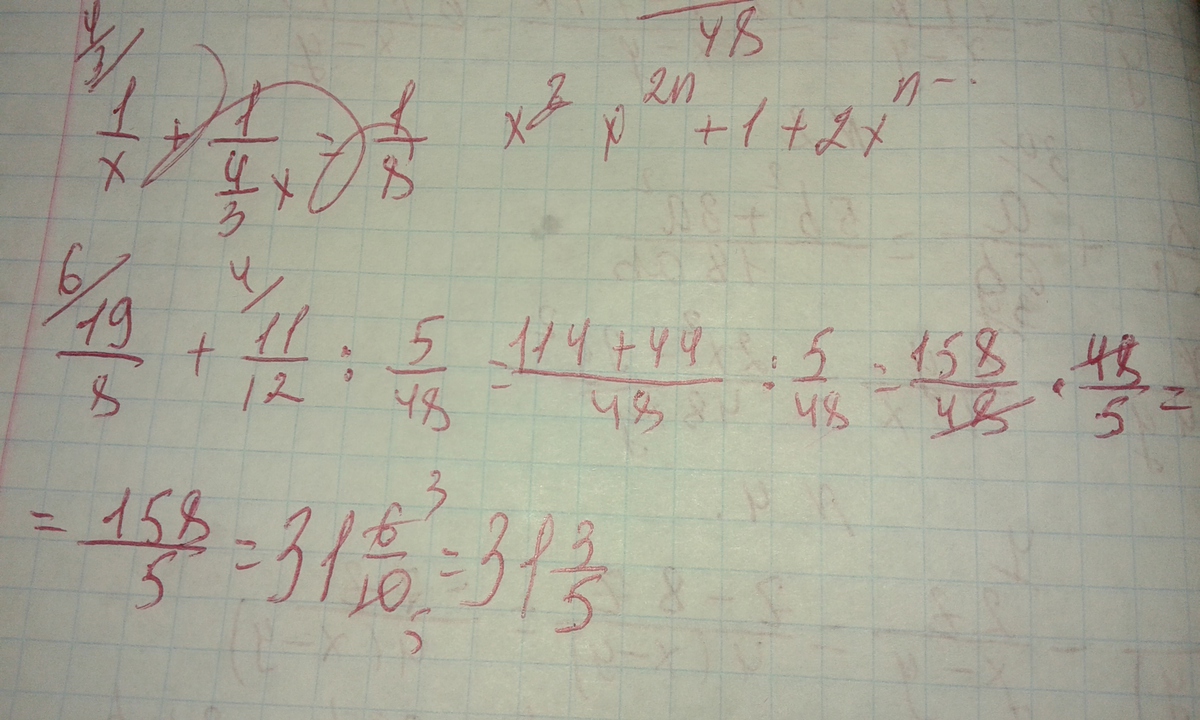 48
4/3/ 1/x + 1/(4/3 x) = 1/8 x² x^2n + 1 + 2x^n-
6/ 19/8 + 4/ 11/12 : 5/48 = 114+44/48 : 5/48 = 158/48 · 48/5 =
= 158/5 = 31 6/10 3 5 = 31 3/5